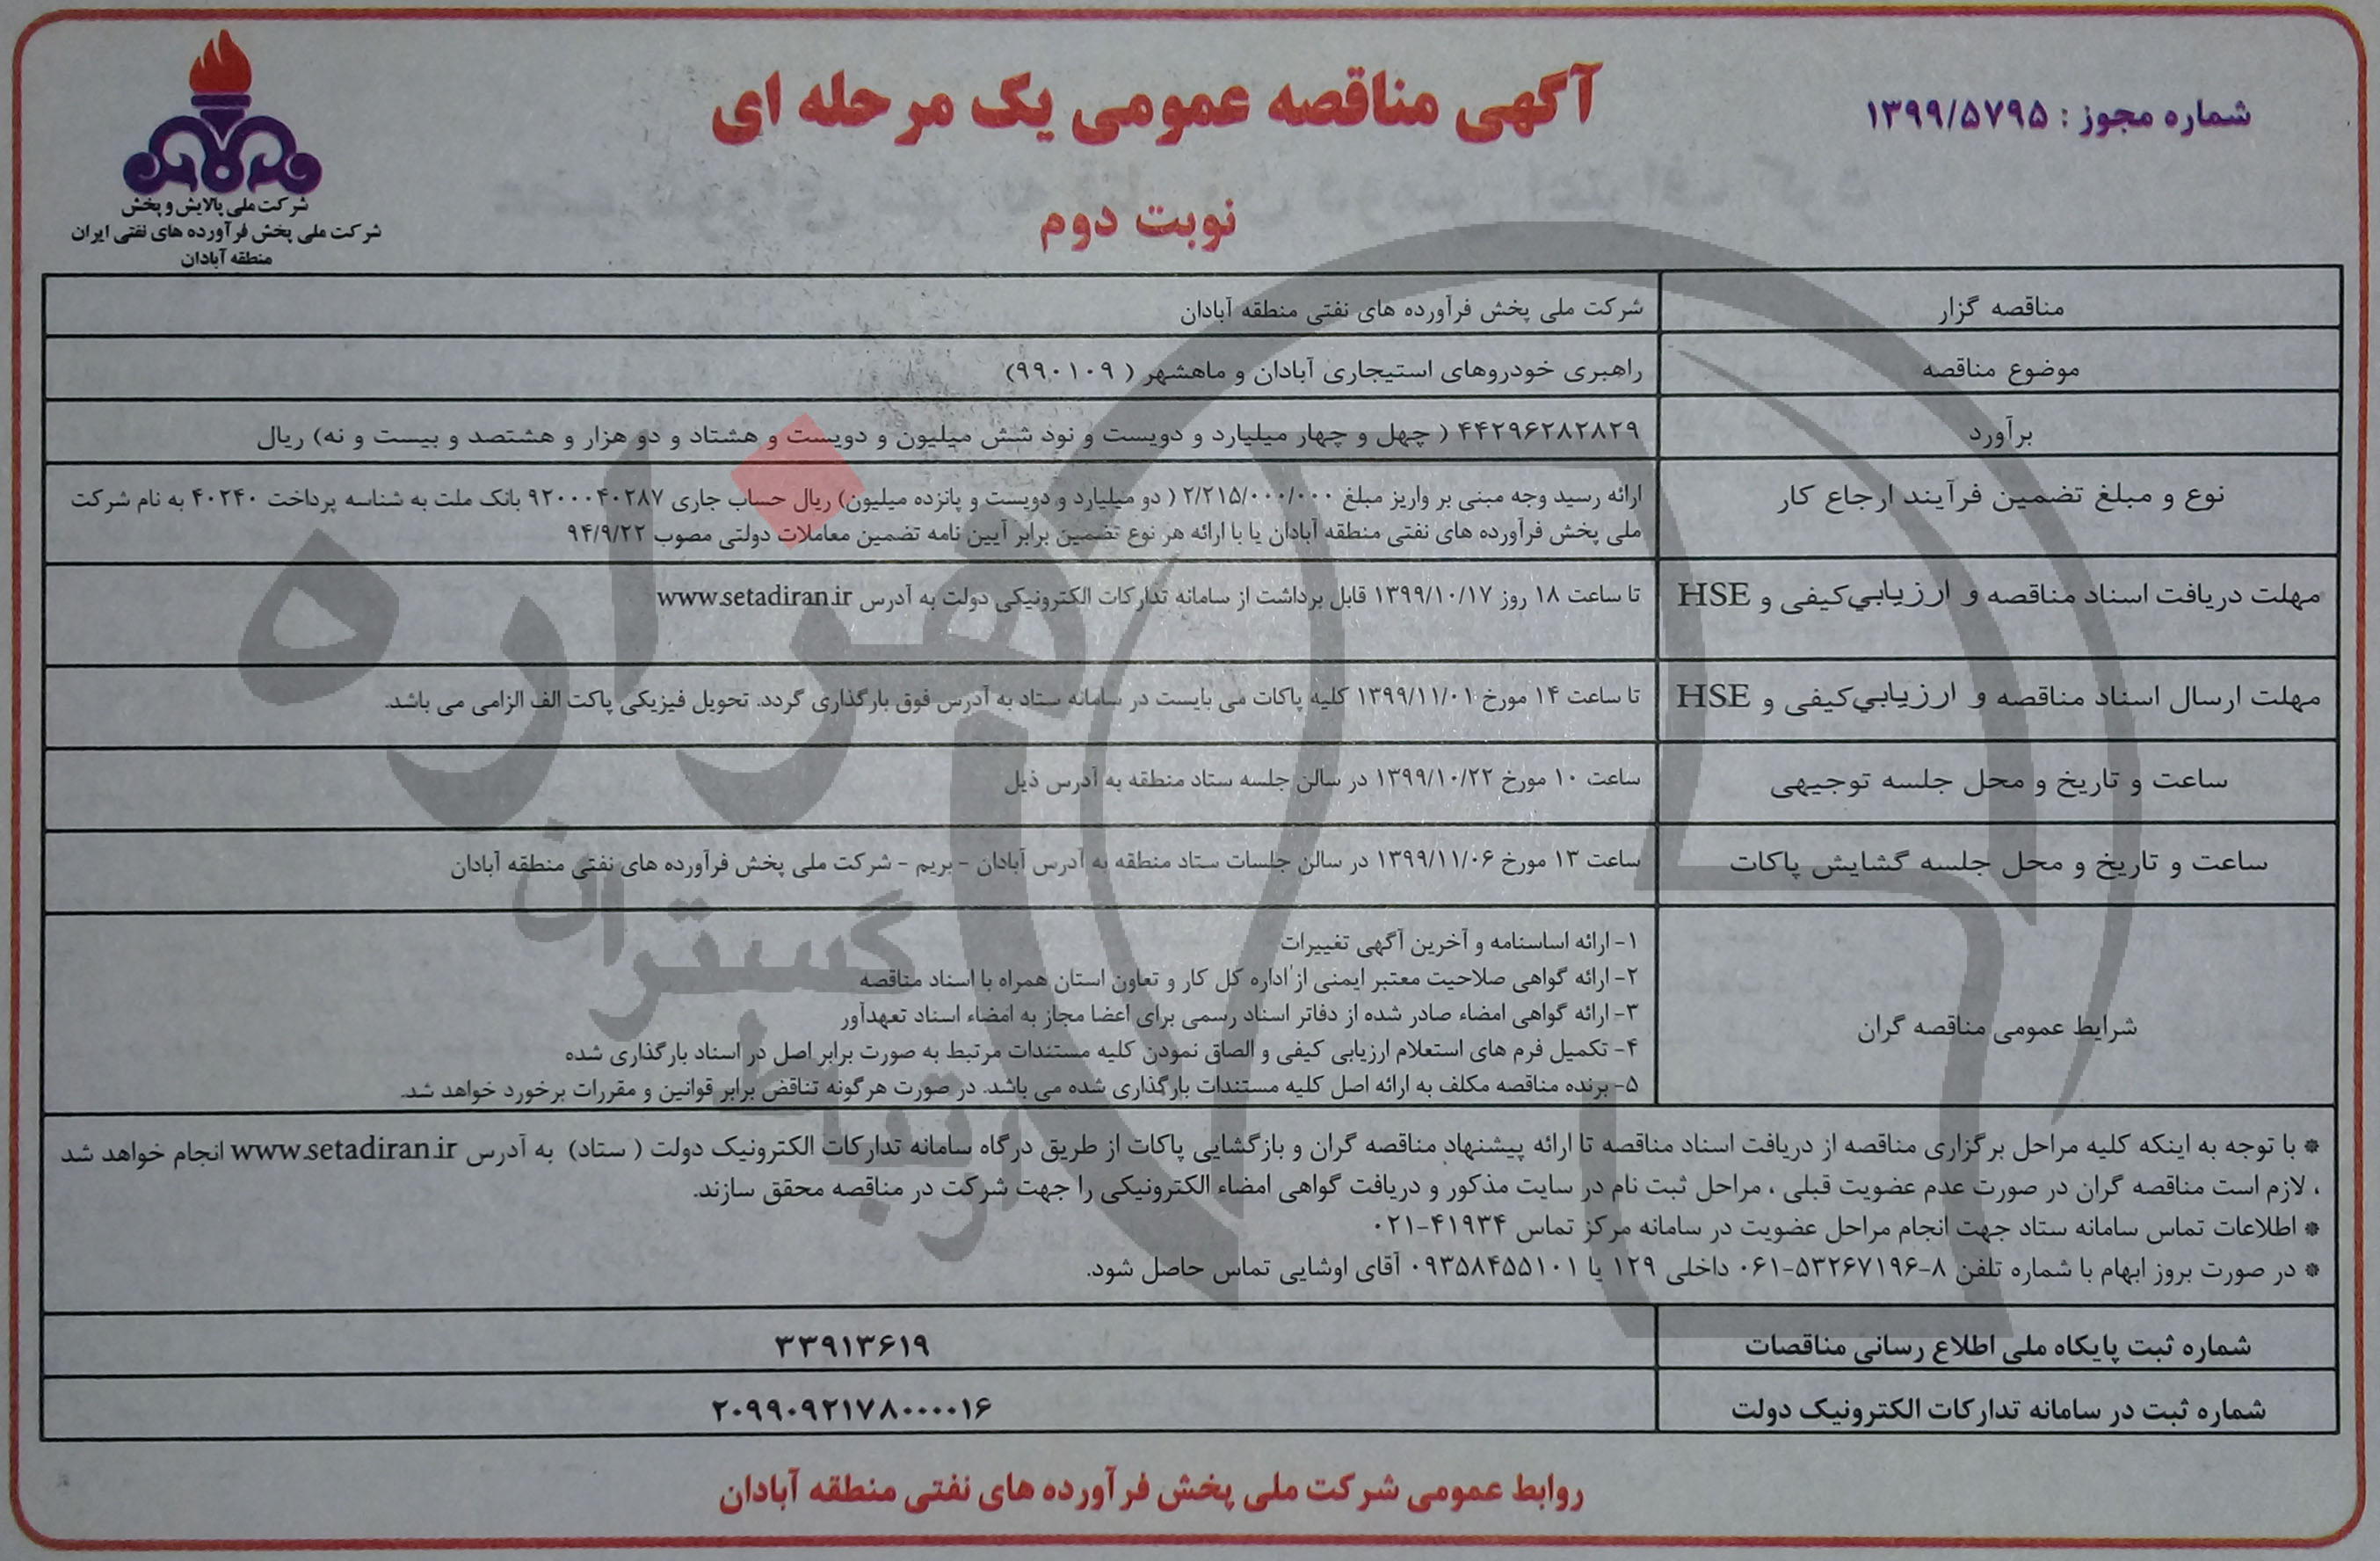 شماره مجوز : ۱۳۹۹/۵۷۹۵
آگهی مناقصه عمومی یک مرحله ای
نوبت دوم
شرکت ملی پالایش و پخش
شرکت ملی پخش فرآورده های نفتی ایران
منطقه آبادان
مناقصه گزار
شرکت ملی پخش فرآورده های نفتی منطقه آبادان
موضوع مناقصه
راهبری خودروهای استیجاری آبادان و ماهشهر ( ۹۹۰۱۰۹)
برآورد
۴۴۲۹۶۲۸۲۸۲۹ ( چهل و چهار میلیارد و دویست و نود شش میلیون و دویست و هشتاد و دو هزار و هشتصد و بیست و نه) ریال
نوع و مبلغ تضمین فرآیند ارجاع کار
ارائه رسید وجه مبنی بر واریز مبلغ ۲/۲۱۵/۰۰۰/۰۰۰ ( دو میلیارد و دویست و پانزده میلیون) ریال حساب جاری ۹۲۰۰۰۴۰۲۸۷ بانک ملت به شناسه پرداخت ۴۰۲۴۰ به نام شرکت
ملی پخش فرآورده های نفتی منطقه آبادان یا با ارائه هر نوع تضمین برابر آیین نامه تضمین معاملات دولتی مصوب ۹۴/۹/۲۲
مهلت دریافت اسناد مناقصه و ارزیابي کیفی و HSE
تا ساعت ۱۸ روز ۱۳۹۹/۱۰/۱۷ قابل برداشت از سامانه تدارکات الکترونیکی دولت به آدرس www.setadiran.ir
مهلت ارسال اسناد مناقصه و ارزیابي کیفی و HSE
تا ساعت ۱۴ مورخ ۱۳۹۹/۱۱/۰۱ کلیه پاکات می بایست در سامانه ستاد به آدرس فوق بارگذاری گردد. تحویل فیزیکی پاکت الف الزامی می باشد.
ساعت و تاریخ و محل جلسه توجیهی
ساعت ۱۰ مورخ ۱۳۹۹/۱۰/۲۲ در سالن جلسه ستاد منطقه به آدرس ذیل
ساعت و تاریخ و محل جلسه گشایش پاکات
ساعت ۱۳ مورخ ۱۳۹۹/۱۱/۰۶ در سالن جلسات ستاد منطقه به آدرس آبادان - بریم - شرکت ملی پخش فرآورده های نفتی منطقه آبادان
شرایط عمومی مناقصه گران
۱- ارائه اساسنامه و آخرین آگهی تغییرات
۲- ارائه گواهی صلاحیت معتبر ایمنی از اداره کل کار و تعاون استان همراه با اسناد مناقصه
۳- ارائه گواهی امضاء صادر شده از دفاتر اسناد رسمی برای اعضا مجاز به امضاء اسناد تعهدآور
۴- تکمیل فرم های استعلام ارزیابی کیفی و الصاق نمودن کلیه مستندات مرتبط به صورت برابر اصل در اسناد بارگذاری شده
۵- برنده مناقصه مکلف به ارائه اصل کلیه مستندات بارگذاری شده می باشد. در صورت هرگونه تناقض برابر قوانین و مقررات برخورد خواهد شد.
* با توجه به اینکه کلیه مراحل برگزاری مناقصه از دریافت اسناد مناقصه تا ارائه پیشنهاد مناقصه گران و بازگشایی پاکات از طریق درگاه سامانه تدارکات الکترونیک دولت ( ستاد) به آدرس www.setadiran.ir انجام خواهد شد
، لازم است مناقصه گران در صورت عدم عضویت قبلی ، مراحل ثبت نام در سایت مذکور و دریافت گواهی امضاء الکترونیکی را جهت شرکت در مناقصه محقق سازند.
* اطلاعات تماس سامانه ستاد جهت انجام مراحل عضویت در سامانه مرکز تماس ۴۱۹۳۴-۰۲۱
* در صورت بروز ابهام با شماره تلفن ۸-۵۳۲۶۷۱۹۶-۰۶۱ داخلی ۱۲۹ یا ۰۹۳۵۸۴۵۵۱۰۱ آقای اوشایی تماس حاصل شود.
شماره ثبت پایگاه ملی اطلاع رسانی مناقصات
۳۳۹۱۳۶۱۹
شماره ثبت در سامانه تدارکات الکترونیک دولت
۲۰۹۹۰۹۲۱۷۸۰۰۰۰۱۶
روابط عمومی شرکت ملی پخش فرآورده های نفتی منطقه آبادان
هزاره
گستران
ارتباط